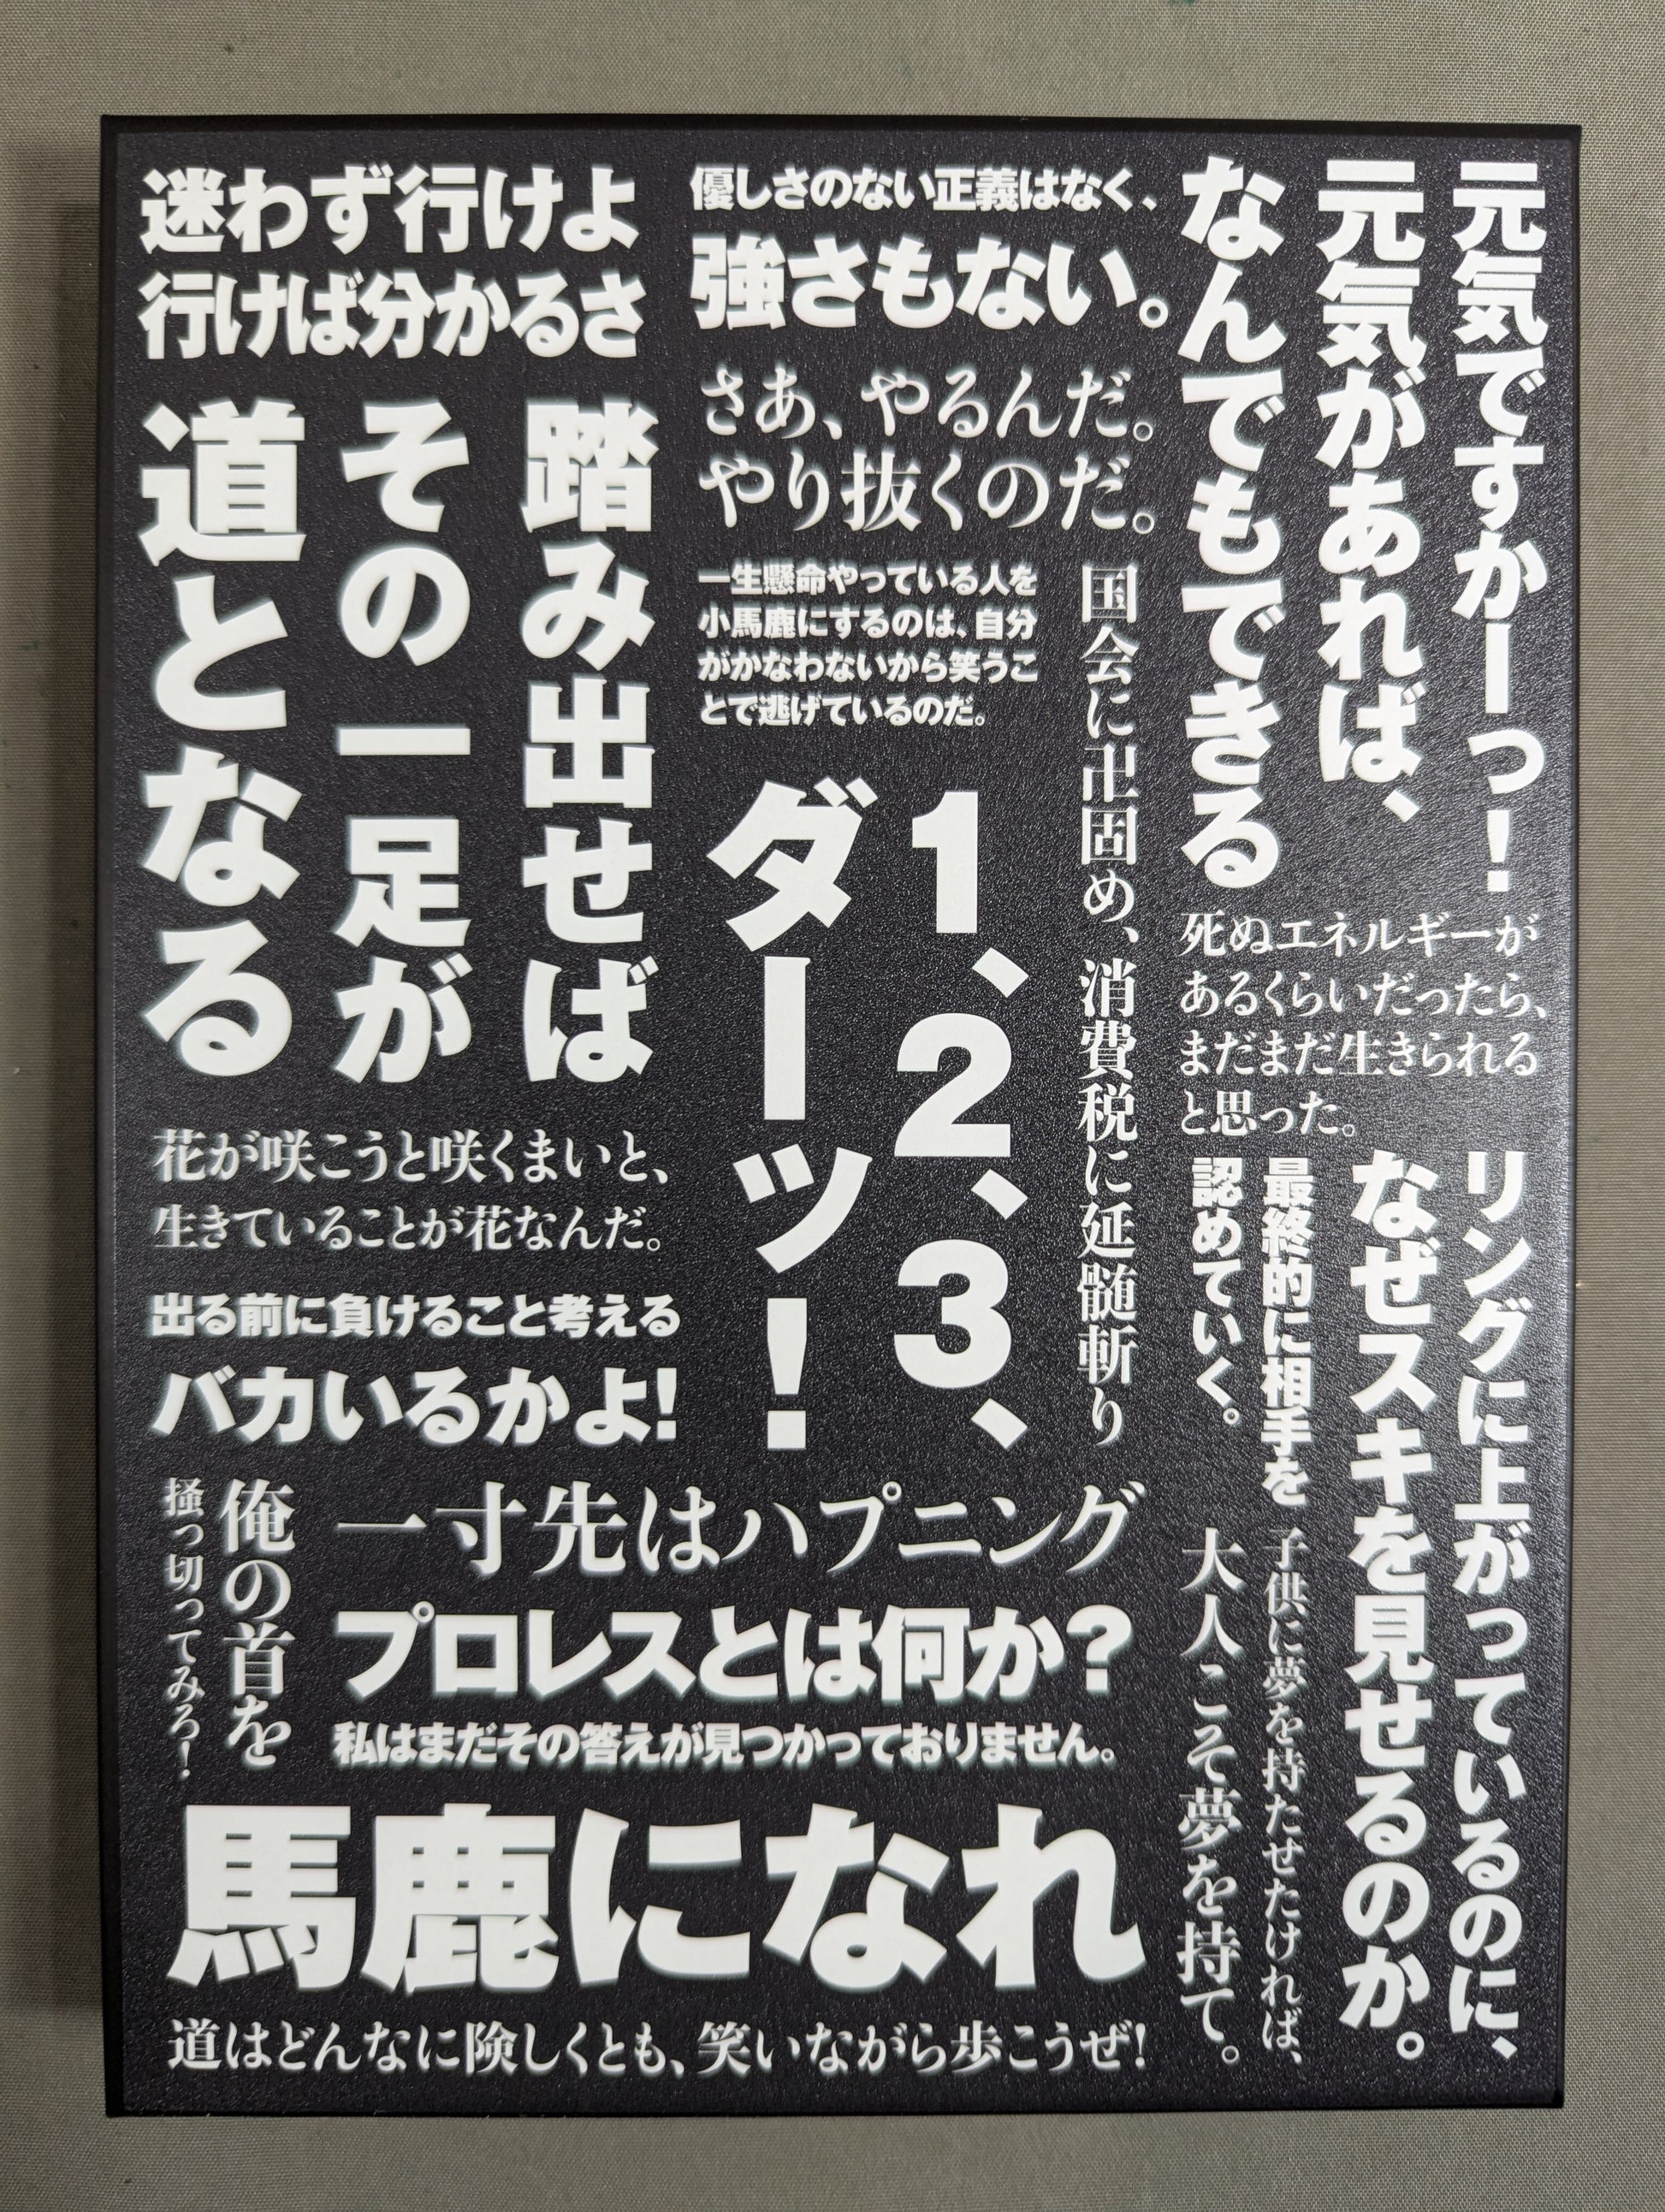 元気ですかーっ!
元気があれば、
なんでもできる
死ぬエネルギーが
あるくらいだったら、
まだまだ生きられる
と思った。
リングに上がっているのに、
なぜスキを見せるのか。
最終的に相手を
認めていく。
子供に夢を持たせたければ、
大人こそ夢を持て。
優しさのない正義はなく、
強さもない。
さあ、やるんだ。
やり抜くのだ。
国会に卍固め、消費税に延髄斬り
一生懸命やっている人を
小馬鹿にするのは、自分
がかなわないから笑うこ
とで逃げているのだ。
1、2、3、
ダーッ!
迷わず行けよ
行けば分かるさ
踏み出せば
その一足が
道となる
花が咲こうと咲くまいと、
生きていることが花なんだ。
出る前に負けること考える
バカいるかよ!
一寸先はハプニング
プロレスとは何か?
私はまだその答えが見つかっておりません。
俺の首を
掻っ切ってみろ!
馬鹿になれ
道はどんなに険しくとも、笑いながら歩こうぜ!